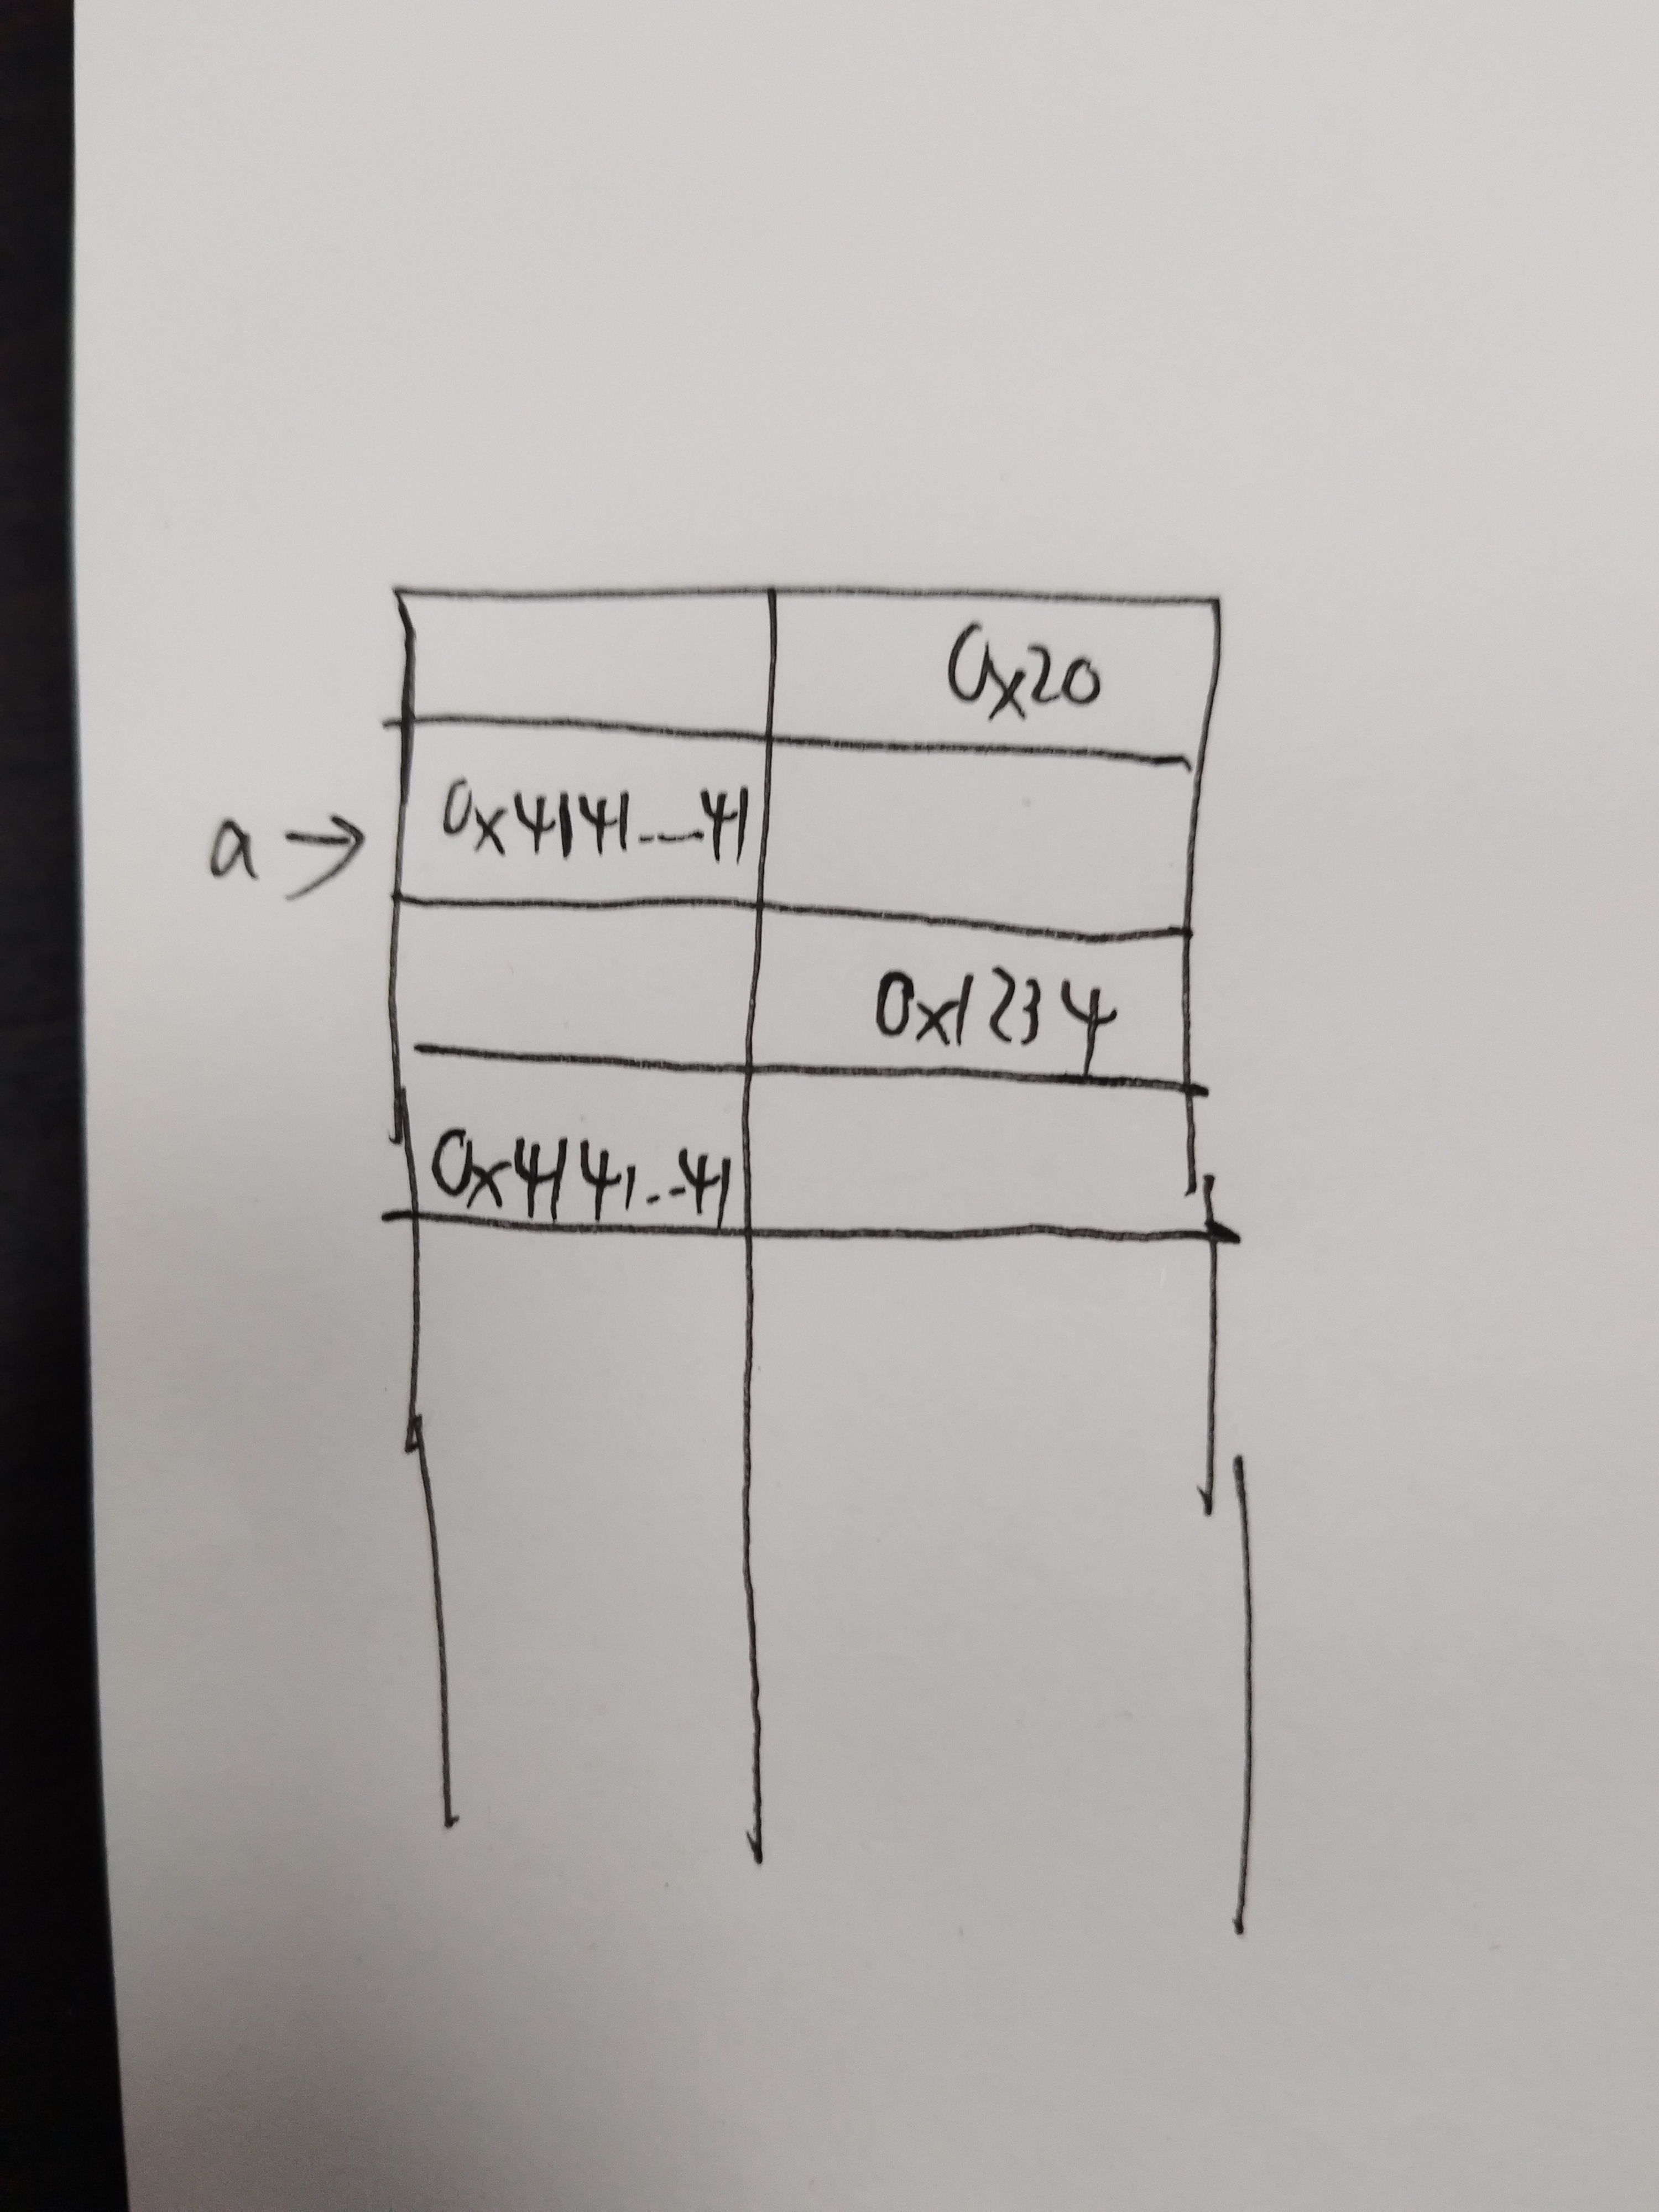 0x20
a → 0x4141---41
0x1234
0x4141--41